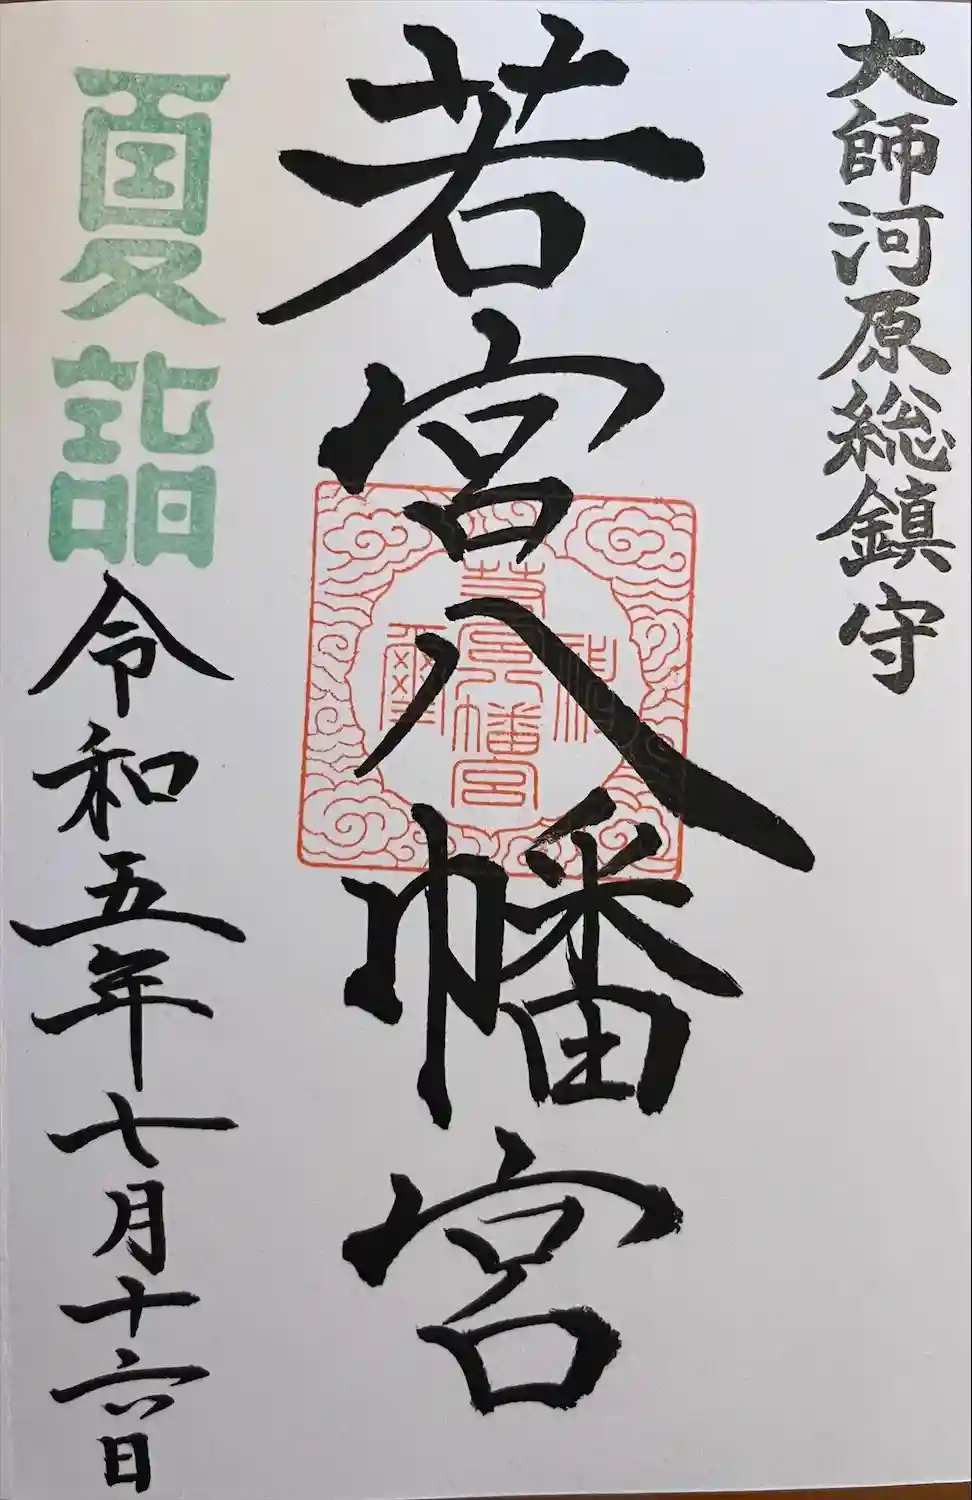 大師河原総鎮守
若宮八幡宮
若宮八幡宮
神璽
夏詣
令和五年七月十六日